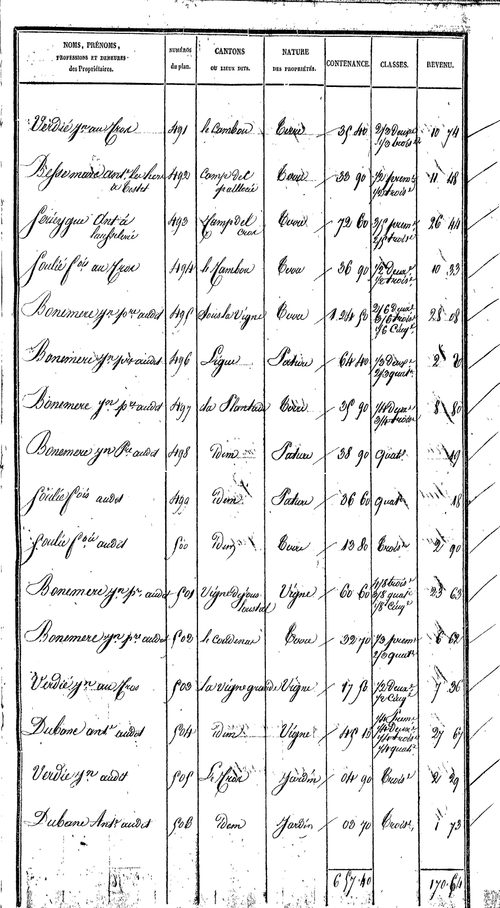 NOMS, PRÉNOMS, PROFESSIONS ET DEMEURES des Propriétaires. NUMÉROS du plan. CANTONS OU LIEUX DITS. NATURE DES PROPRIÉTÉS. CONTENANCE. CLASSES. REVENU.
Verdié jn au Cros 491 le cambou Terre 35 40 2/3 deux 1/3 trois 10 74
492 Camp del Terre 33 90 1/2 prem 1/2 trois 11 48
493 Camp del Cros Terre 72 60 3/5 prem 2/5 trois 26 44
Soulié fois au Cros 494 le Cambou Terre 36 90 1/2 deux 1/2 trois 10 33
Bonemere jn pre audit 495 Sous la Vigne Terre 1 24 50 2/6 deux 3/6 trois 1/6 Cinq 28 08
Bonemere jn pre audit 496 Pature 64 40 1/3 deux 2/3 quat 2
Bonemere jn pre audit 497 la Plantade Terre 35 90 1/4 deux 3/4 trois 8 80
Bonemere jn Pre audit 498 idem Pature 38 90 quat 19
Soulié fois audit 499 idem Pature 36 60 quat 18
Soulié fois audit 500 idem Terre 13 80 Trois 2 90
Bonemere jn pre audit 501 Vigne dejous Vigne 60 60 4/8 trois 3/8 quat 1/8 Cinq 23 63
Bonemere jn pre audit 502 le couderc Terre 32 70 1/3 prem 2/3 quat 6 62
Verdié jn au Cros 503 la Vigne grande Vigne 17 50 1/2 deux 1/2 Cinq 7 36
Dubane ant audit 504 idem Vigne 45 10 1/4 prem 1/4 deux 1/4 trois 1/4 quat 27 67
Verdié jn audit 505 Le Cros Jardin 04 90 Trois 2 29
Dubane Ant audit 506 idem Jardin 03 70 Trois 1 73
657.40 170.64